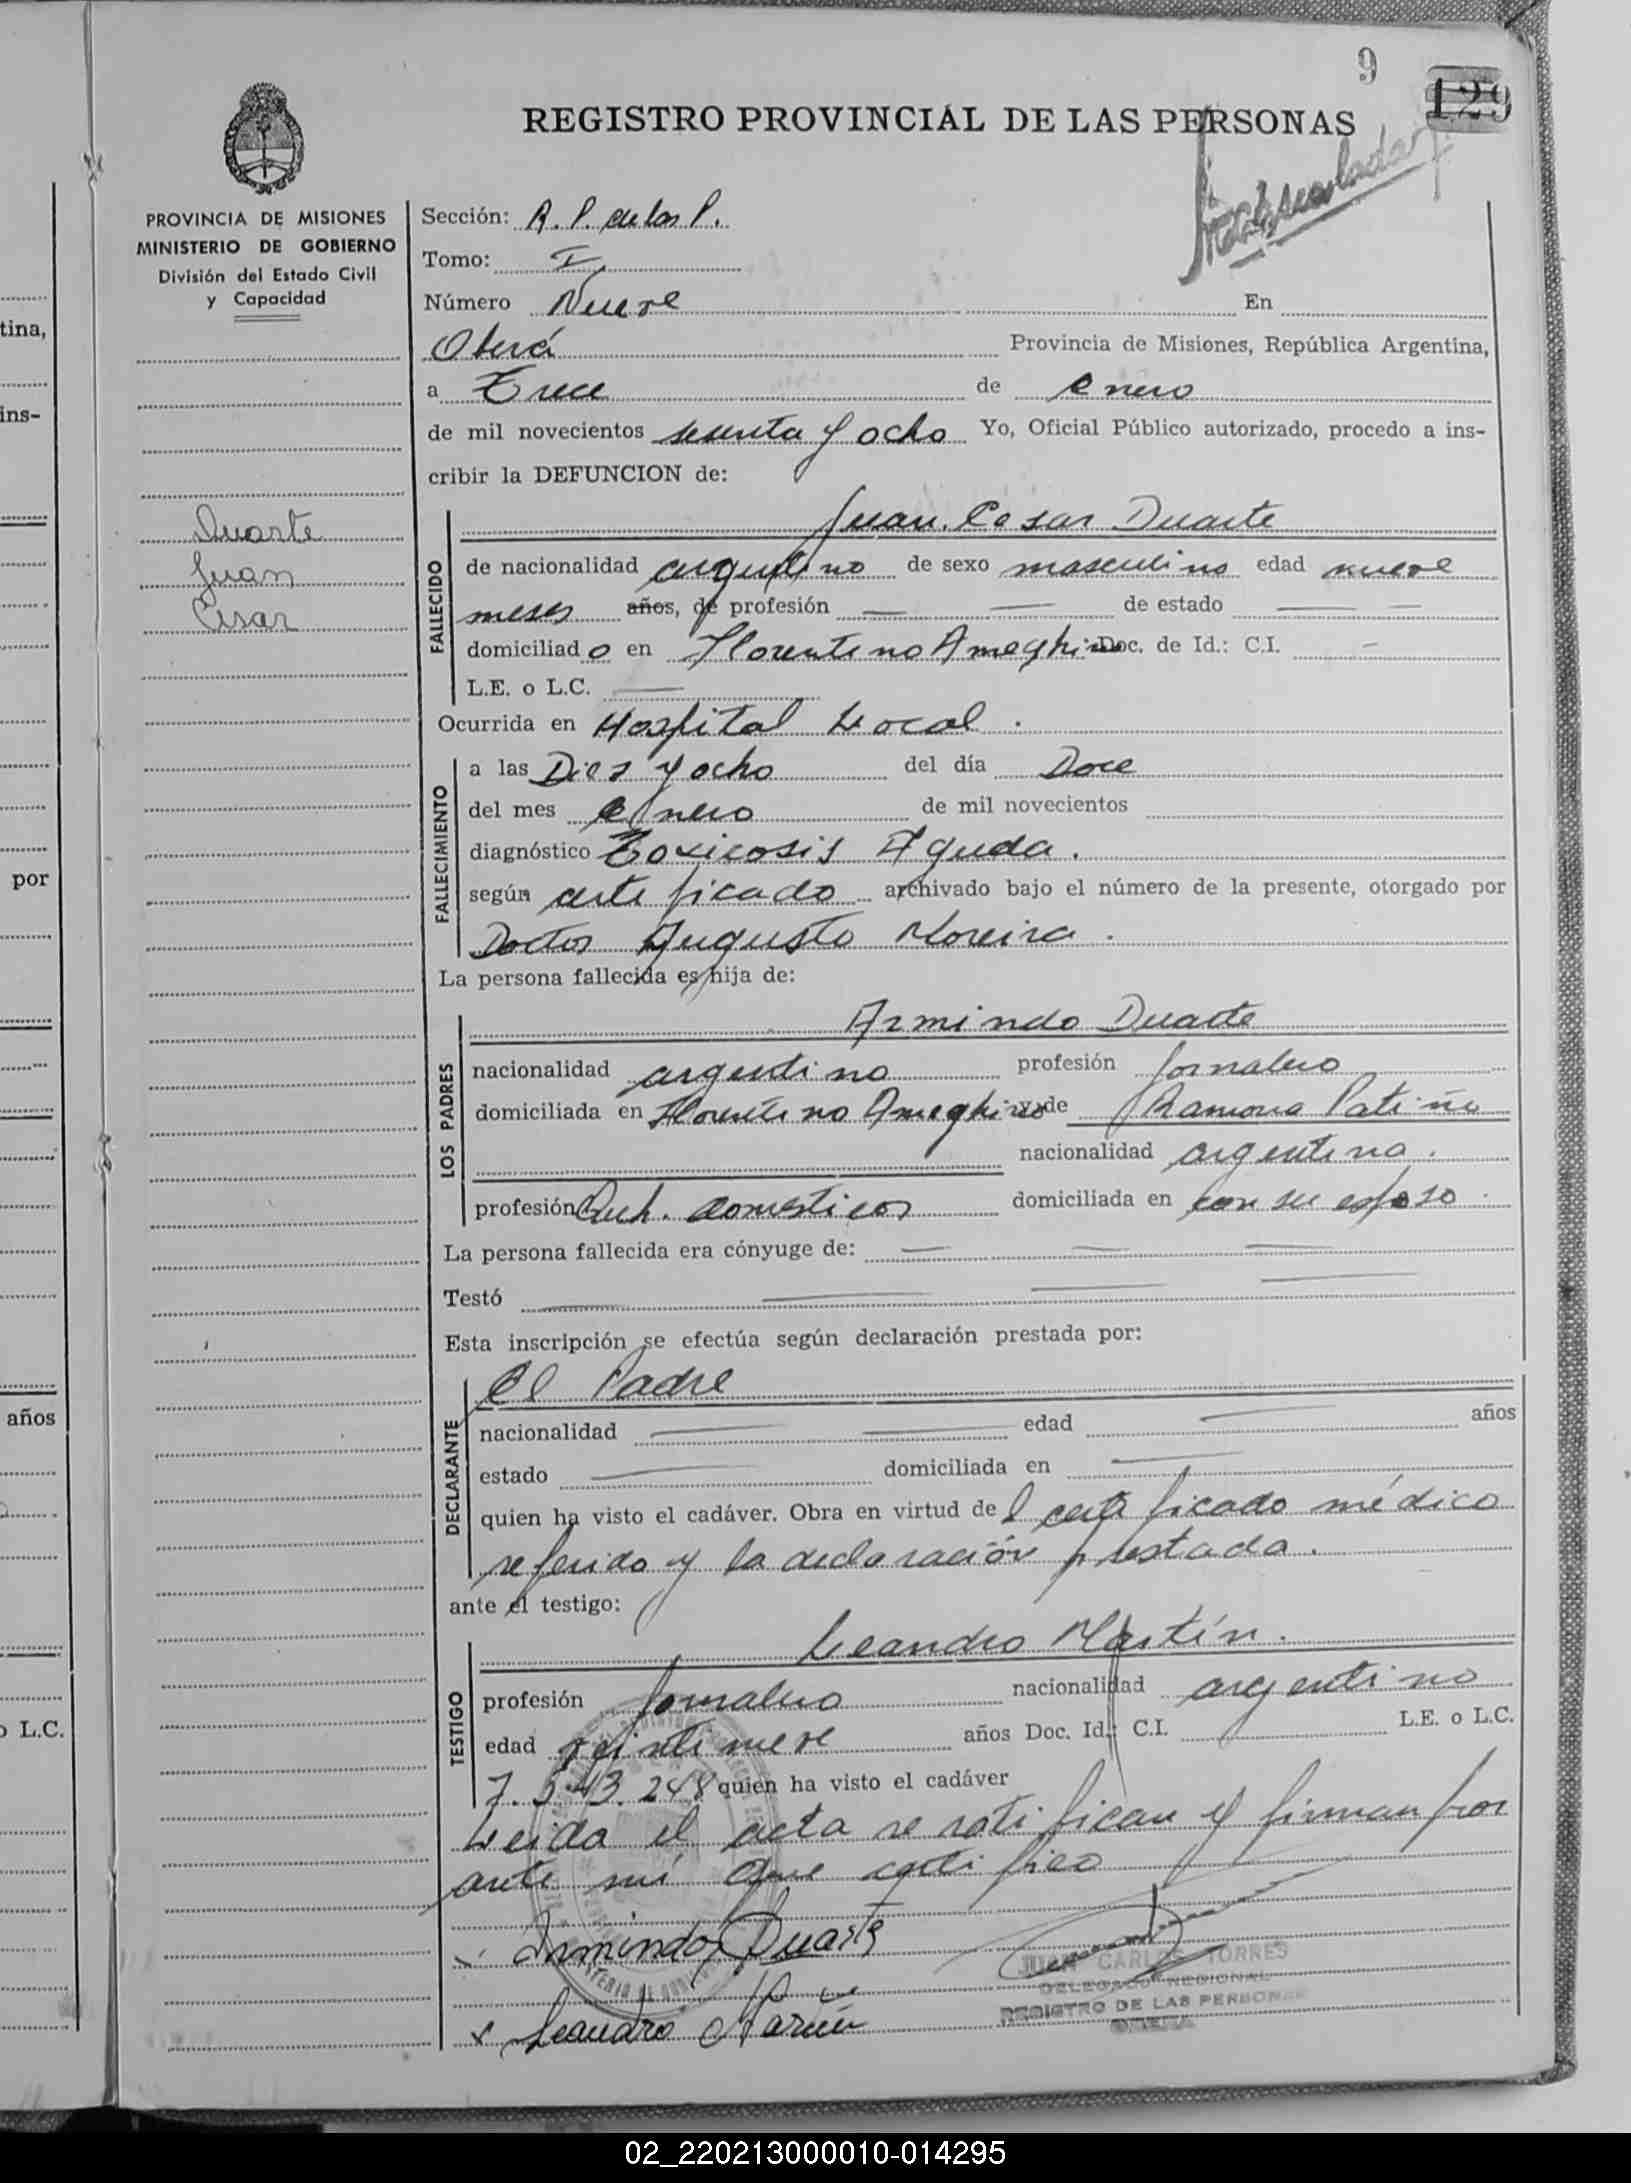 9
129
REGISTRO PROVINCIAL DE LAS PERSONAS
PROVINCIA DE MISIONES
MINISTERIO DE GOBIERNO
División del Estado Civil
y Capacidad
Duarte
Juan
Cesar
Sección: R. P. de las P.
Tomo: I
Número Nueve En
Oberá Provincia de Misiones, República Argentina,
a Trece de enero
de mil novecientos sesenta y ocho Yo, Oficial Público autorizado, procedo a ins-
cribir la DEFUNCION de:
FALLECIDO
Juan Cesar Duarte
de nacionalidad argentino de sexo masculino edad nueve
meses años, de profesión — — de estado — —
domiciliado en Florentino Ameghino Doc. de Id.: C.I. —
L.E. o L.C. —
Ocurrida en Hospital Local.
FALLECIMIENTO
a las Diez y ocho del día Doce
del mes enero de mil novecientos
diagnóstico Toxicosis Aguda.
según certificado archivado bajo el número de la presente, otorgado por
Doctor Augusto Moreira.
La persona fallecida es hija de:
LOS PADRES
Armindo Duarte
nacionalidad argentino profesión jornalero
domiciliada en Florentino Ameghino y de Ramona Patiño
nacionalidad argentina.
profesión Queh. domesticos domiciliada en con su esposo.
La persona fallecida era cónyuge de: — — —
Testó — — — —
Esta inscripción se efectúa según declaración prestada por:
DECLARANTE
El Padre
nacionalidad — — edad — años
estado — domiciliada en —
quien ha visto el cadáver. Obra en virtud del certificado médico
referido y la declaración prestada.
ante el testigo:
TESTIGO
Leandro Martín.
profesión jornalero nacionalidad argentino
edad veintinueve años Doc. Id.: C.I. L.E. o L.C.
7.543.248 quien ha visto el cadáver
Leida el acta se ratifican y firman por
ante mí que certifico
x Armindo Duarte
JUAN CARLOS TORRES
DELEGADO REGIONAL
REGISTRO DE LAS PERSONAS
OBERA
x Leandro Martín
tina,
ins-
por
años
o L.C.
02_220213000010-014295